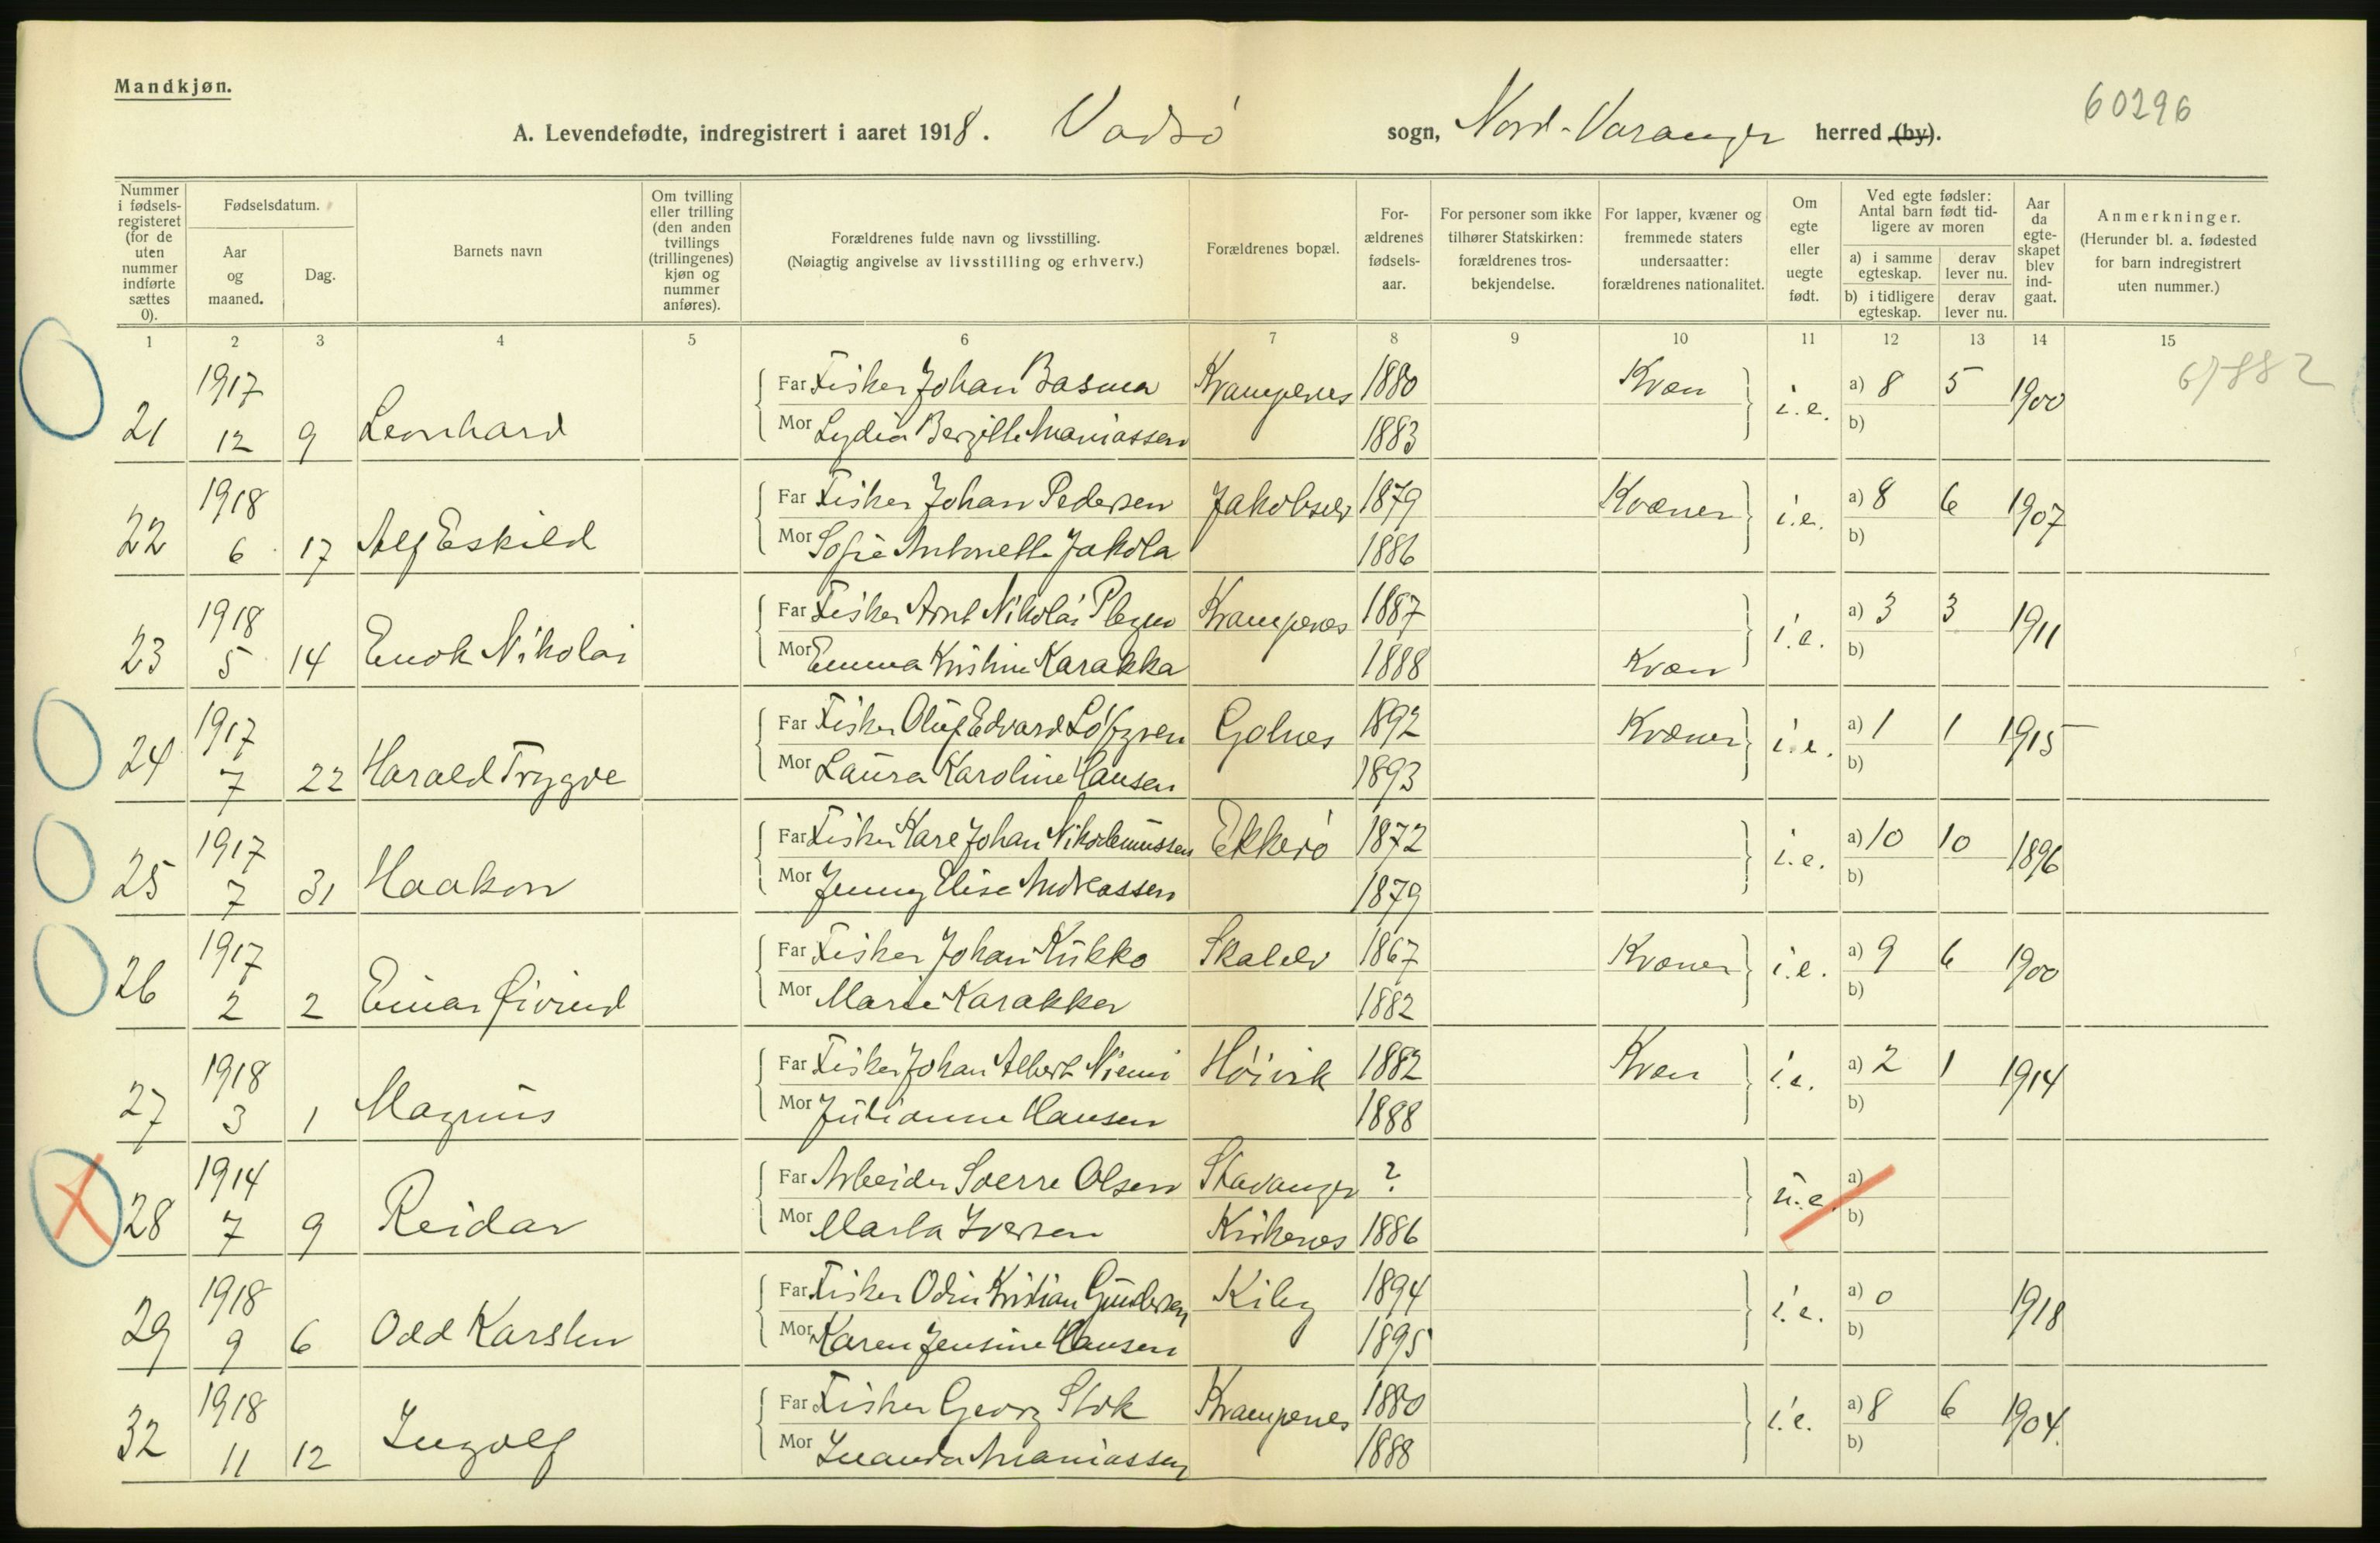 Mandkjøn.
60296
A. Levendefødte, indregistrert i aaret 1918. Vadsö sogn, Nord-Varanger herred (by).
Nummer i fødsels-registeret (for de uten nummer indførte sættes 0).
Fødselsdatum.
Aar og maaned.
Dag.
Barnets navn
Om tvilling eller trilling (den anden tvillings (trillingenes) kjøn og nummer anføres).
Forældrenes fulde navn og livsstilling.
(Nøiagtig angivelse av livsstilling og erhverv.)
Forældrenes bopæl.
For-ældrenes fødsels-aar.
For personer som ikke tilhører Statskirken: forældrenes tros-bekjendelse.
For lapper, kvæner og fremmede staters undersaatter: forældrenes nationalitet.
Om egte eller uegte født.
Ved egte fødsler: Antal barn født tid-ligere av moren
a) i samme egteskap.
derav lever nu.
b) i tidligere egteskap.
derav lever nu.
Aar da egte-skapet blev ind-gaat.
Anmerkninger.
(Herunder bl. a. fødested for barn indregistrert uten nummer.)
1 2 3 4 5 6 7 8 9 10 11 12 13 14 15
21 1917 12 9 Leonhard Far Fisker Johan Basma Krampenes 1880 Kvæn i.e. a) 8 5 1900
Mor Lydia Bergitte Ananiassen 1883 b)
22 1918 6 17 Alf Eskild Far Fisker Johan Pedersen Jakobselv 1879 Kvæner i.e. a) 8 6 1907
Mor Sofie Antonette Jakola 1886 b)
23 1918 5 14 Enok Nikolai Far Fisker Arnt Nikolai Krampenes 1887 i.e. a) 3 3 1911
Mor Emma Kristine Karakka 1888 Kvæn b)
24 1917 7 22 Harald Trygve Far Fisker Oluf Edvard Löfgren Golnes 1892 Kvæner i.e. a) 1 1 1915
Mor Laura Karoline Hansen 1893 b)
25 1917 7 31 Haakon Far Fisker Kare Johan Nikodemussen Ekkerö 1872 i.e. a) 10 10 1896
Mor Jenny Elise Andreassen 1879 b)
26 1917 2 2 Einar Øivind Far Fisker Johan Kukko Skalelv 1867 Kvæner i.e. a) 9 6 1900
Mor Marie Karakka 1882 b)
27 1918 3 1 Magnus Far Fisker Johan Albert Niemi Höivik 1882 Kvæn i.e. a) 2 1 1914
Mor Julianne Hansen 1888 b)
28 1914 7 9 Reidar Far Arbeider Sverre Olsen Stavanger ? u.e. a)
Mor Marta Iversen Kirkenes 1886 b)
29 1918 9 6 Odd Karsten Far Fisker Odin Kristian Gundersen Kiby 1894 i.e. a) 0 1918
Mor Karen Jensine Hansen 1895 b)
32 1918 11 12 Ingolf Far Fisker Georg Stok Krampenes 1880 i.e. a) 8 6 1904.
Mor Ananiassen 1888 b)